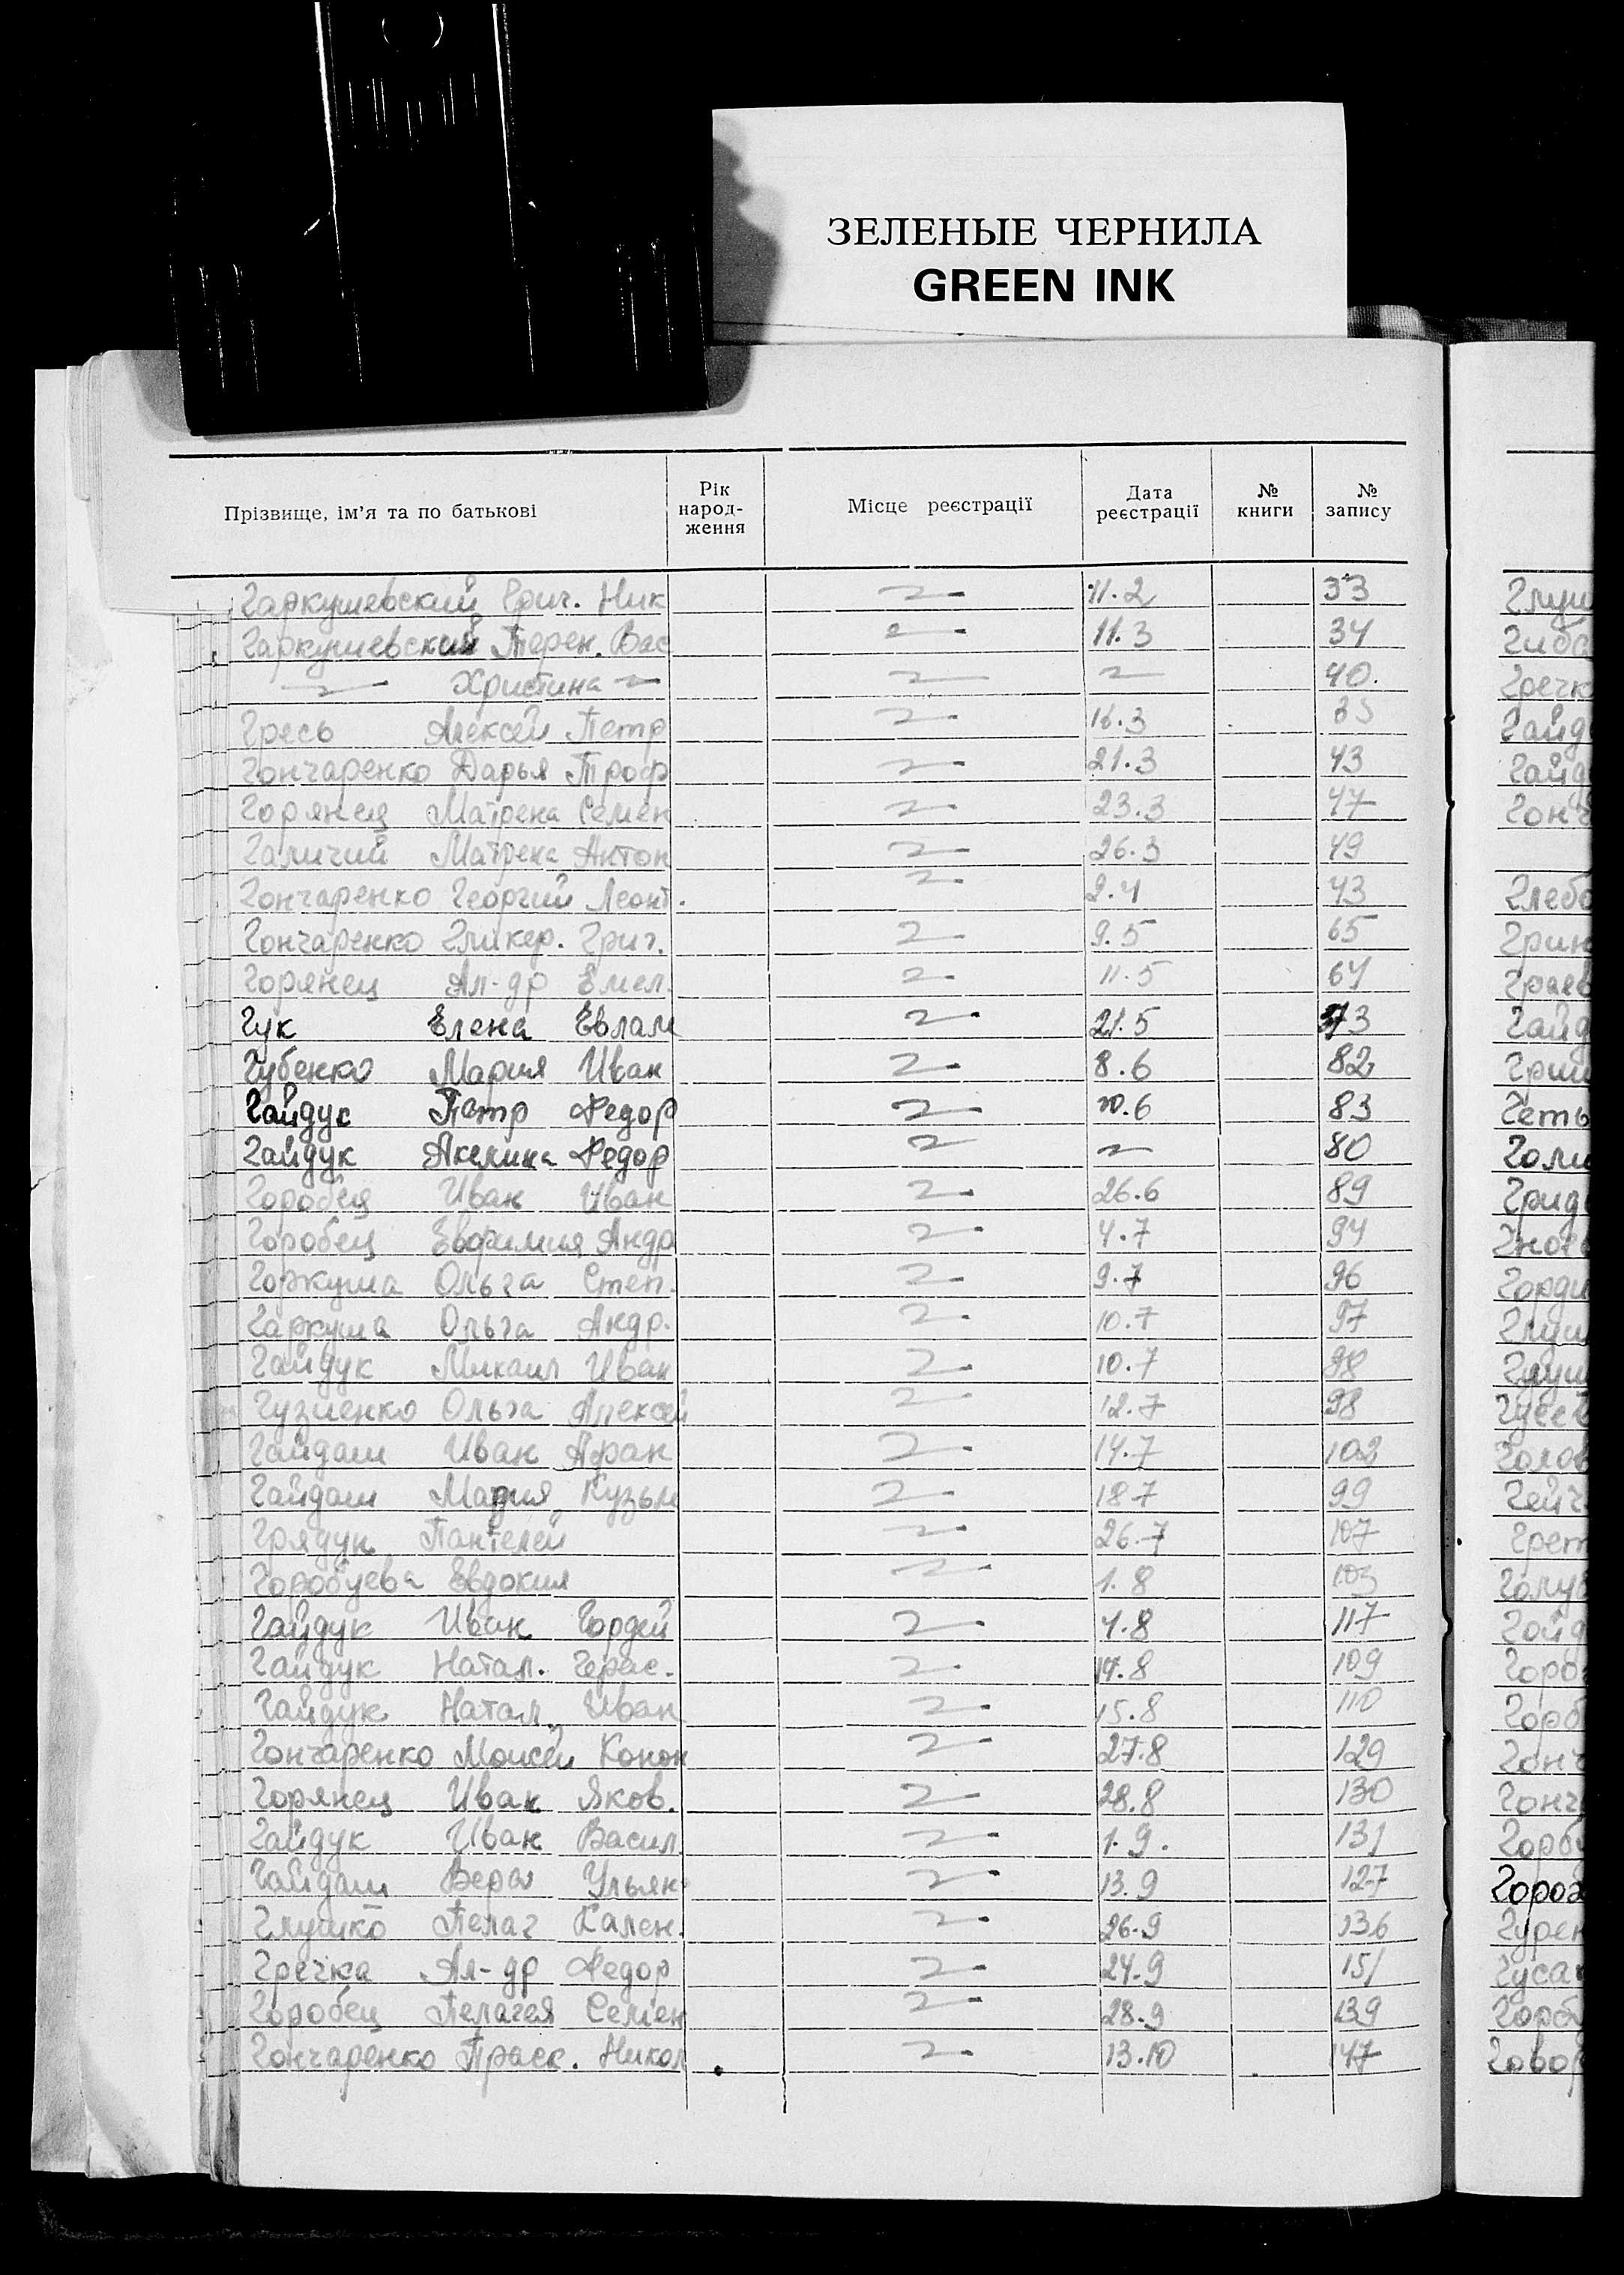 ЗЕЛЕНЫЕ ЧЕРНИЛА
GREEN INK
Прізвище, ім'я та по батькові Рік народ-ження Місце реєстрації Дата реєстрації № книги № запису
Гаркушевский Григ. Ник 11.2 33
Гаркушевский Терен. Вас 11.3 34
Христина 40.
Гресь Алексей Петр 16.3 35
Гончаренко Дарья Троф 21.3 43
Горянец Матрена Семен 23.3 47
Галичий Матрена Антон 26.3 49
Гончаренко Георгий Леонт. 2.4 43
Гончаренко Гликер. Григ. 9.5 65
Горянец Ал-др Емел. 11.5 64
Гук Елена Евлам 21.5 73
Губенко Мария Иван 8.6 82
Гайдук Петр Федор 10.6 83
Гайдук Акелина Федор 80
Горобец Иван Иван 26.6 89
Горобец Евфимия Андр 4.7 94
Горкуша Ольга Степ. 9.7 96
Гаркуша Ольга Андр. 10.7 97
Гайдук Михаил Иван 10.7 98
Гузиенко Ольга Алексей 12.7 98
Гайдаш Иван Афан 14.7 102
Гайдаш Мария Кузьм 18.7 99
Грядун Пантелей 26.7 107
Горобцева Евдокия 1.8 103
Гайдук Иван Гордей 4.8 117
Гайдук Натал. Герас. 14.8 109
Гайдук Натал. Иван 15.8 110
Гончаренко Моисей Конон 27.8 129
Горянец Иван Яков. 28.8 130
Гайдук Иван Васил 1.9. 131
Гайдаш Вера Ульян 13.9 127
Глушко Пелаг Кален. 26.9 136
Гречка Ал-др Федор 24.9 151
Горобец Пелагея Семен 28.9 139
Гончаренко Праск. Никол 13.10 147